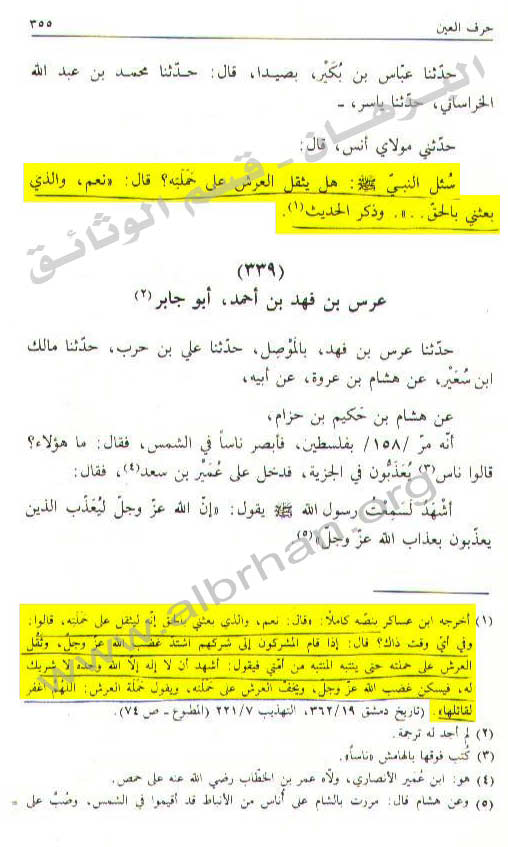 حرف العين ٣٥٥
حدّثنا عبّاس بن بُكَيْر، بصيدا، قال: حدّثنا محمد بن عبد الله
الخراساني، حدّثنا ياسر، ـ
حدّثني مولاي أنس، قال:
سُئل النبيّ ﷺ: هل يثقل العرش على حَمَلَتِه؟ قال: «نعم، والذي
بعثني بالحقّ...». وذكر الحديث(١).
(٣٣٩)
عرس بن فهد بن أحمد، أبو جابر(٢)
حدّثنا عرس بن فهد، بالمَوْصِل، حدّثنا علي بن حرب، حدّثنا مالك
ابن سُعَيْر، عن هشام بن عروة، عن أبيه،
عن هشام بن حَكيم بن حزام،
أنّه مرّ /١٥٨/ بفلسطين، فأبصر ناساً في الشمس، فقال: ما هؤلاء؟
قالوا ناس(٣) يُعَذَّبُون في الجزية، فدخل على عُمَيْر بن سعد(٤)، فقال:
أشْهَدُ لَسَمِعْتُ رسول الله ﷺ يقول: «إنّ الله عزّ وجلّ ليُعَذّب الذين
يعذّبون بعذاب الله عزّ وجلّ»(٥)
(١) أخرجه ابن عساكر بنصّه كاملاً: «قال: نعم، والذي بعثني بالحق إنّه ليثقل على حَمَلَتِه، قالوا:
وفي أيّ وقت ذاك؟ قال: إذا قام المشركون إلى شركهم اشتدّ غضب الله عزّ وجلّ، وثَقُل
العرش على حملته حتى ينتبه المنتبه من أمّتي فيقول: أشهد أن لا إله إلّا الله وحده لا شريك
له، فيسكن غضب الله عزّ وجلّ، ويخفّ العرش على حَمَلَته، ويقول حَمَلَة العرش: اللهمّ اغفر
لقائلها». (تاريخ دمشق ٣٦٢/١٩، التهذيب ٢٢١/٧ (المطبوع ـ ص ٧٤).
(٢) لم أجد له ترجمة.
(٣) كُتب فوقها بالهامش «ناساً».
(٤) هو: ابن عُمَير الأنصاري، ولّاه عمر بن الخطّاب رضي الله عنه على حمص.
(٥) وعن هشام قال: مررت بالشام على أُناس من الأنباط قد أقيموا في الشمس، وصُبّ على =
البرهان - قسم الوثائق
www.albrhan.org